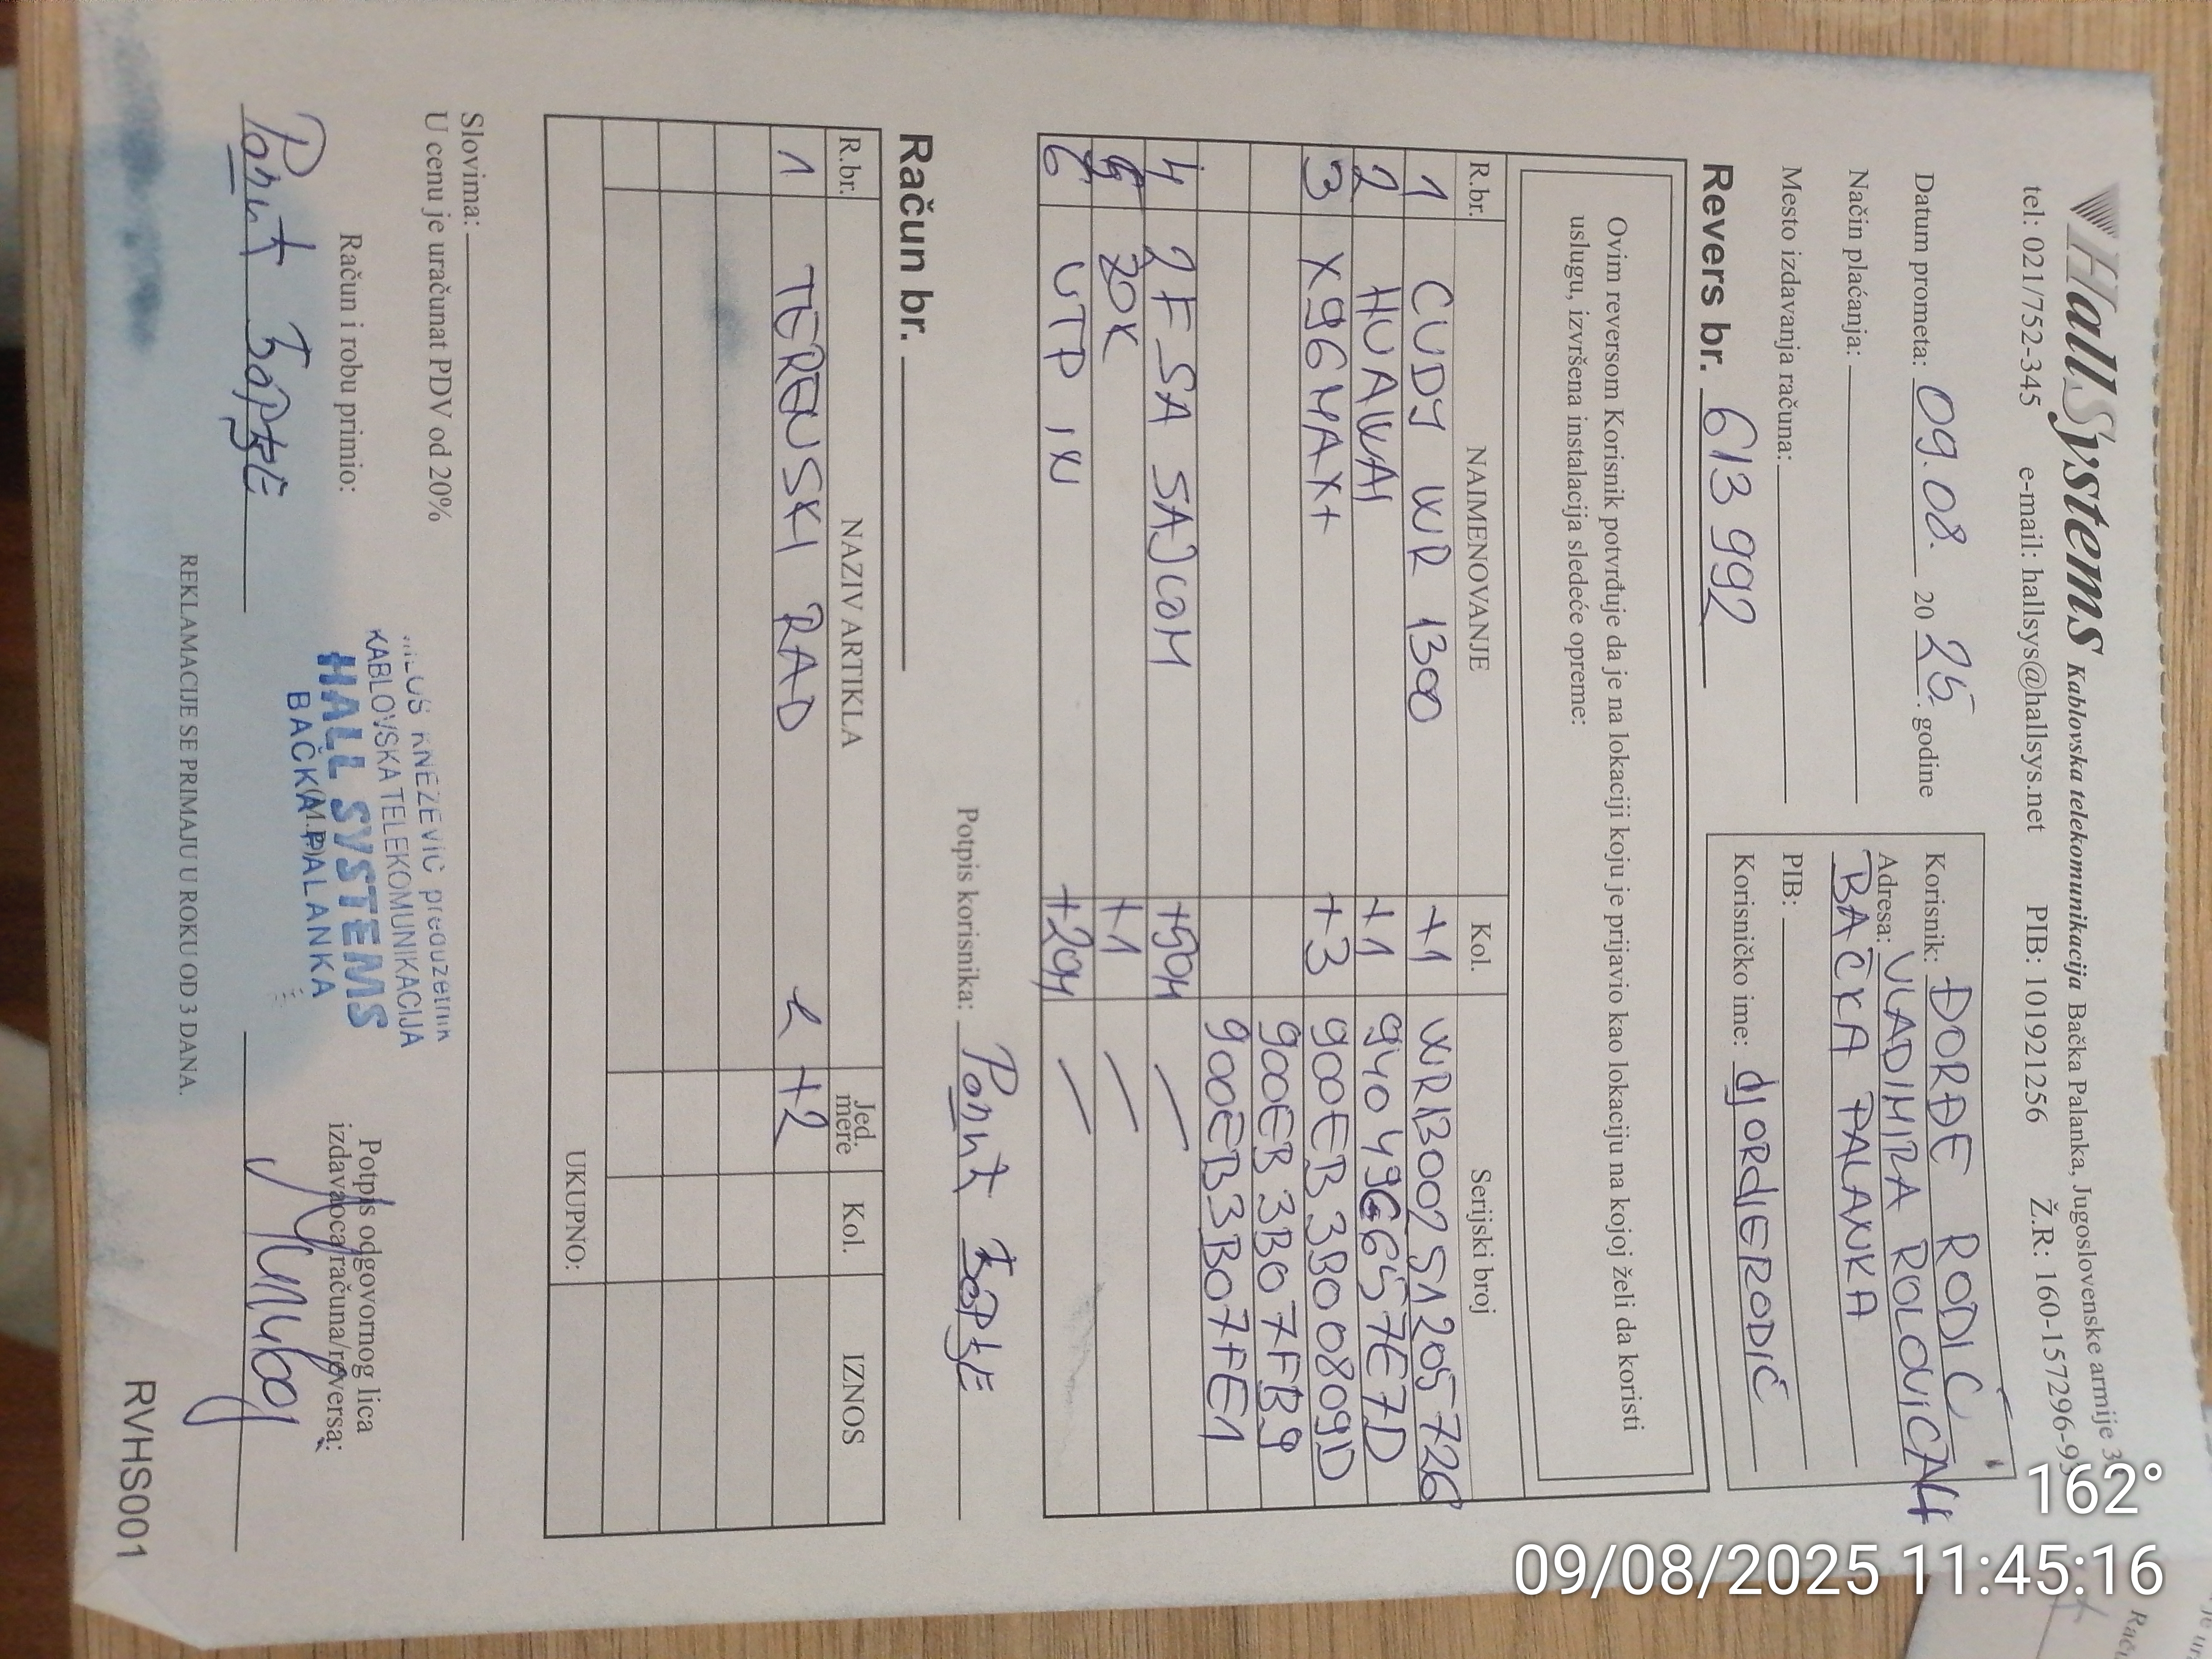 HallSystems Kablovska telekomunikacija Bačka Palanka, Jugoslovenske armije 3
tel: 021/752-345 e-mail: hallsys@hallsys.net PIB: 101921256 Ž.R: 160-157296-93
Datum prometa: 09.08. 2025. godine
Način plaćanja:
Mesto izdavanja računa:
Korisnik: ĐORĐE RODIĆ
Adresa: VLADIMIRA ROLOVIĆA 4
BAČKA PALANKA
PIB:
Korisničko ime: djORdjERODIĆ
Revers br. 613992
Ovim reversom Korisnik potvrđuje da je na lokaciji koju je prijavio kao lokaciju na kojoj želi da koristi
uslugu, izvršena instalacija sledeće opreme:
R.br. NAIMENOVANJE Kol. Serijski broj
1 CUDY WR 1300 +1 WR1300251205726
2 HUAWAI +1 9404966657E7D
3 X96MAX+ +3 900EB3B00809D
900EB3B07FB9
900EB3B07FE1
4 2F SA SAJLOM +50M
5 ZOK +1
6 UTP IN +20M
Potpis korisnika: Родић Ђорђе
Račun br.
R.br. NAZIV ARTIKLA Jed. mere Kol. IZNOS
1 TERENSKI RAD +2
UKUPNO:
Slovima:
U cenu je uračunat PDV od 20%
Račun i robu primio:
Родић Ђорђе
MILOŠ KNEŽEVIĆ preduzetnik
KABLOVSKA TELEKOMUNIKACIJA
HALL SYSTEMS
BAČKA PALANKA
(M.P.)
Potpis odgovornog lica
izdavaoca računa/reversa:
REKLAMACIJE SE PRIMAJU U ROKU OD 3 DANA.
RVHS001
162°
09/08/2025 11:45:16